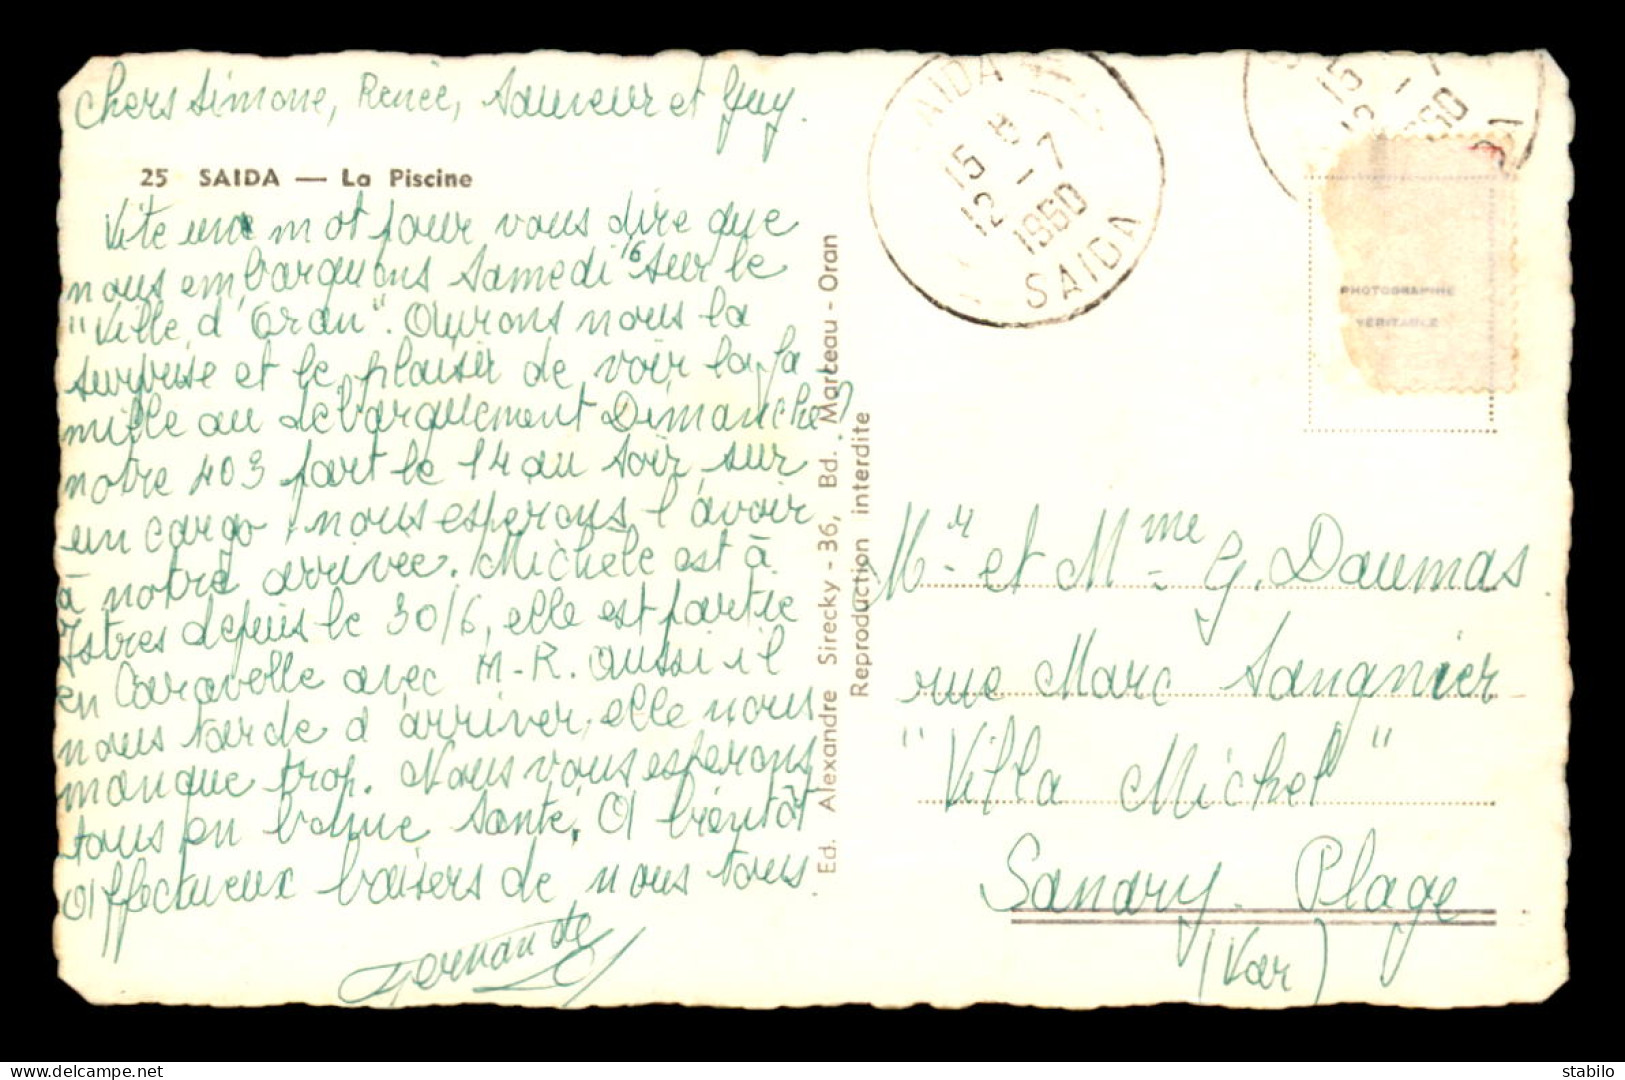 Chers Simone, Renée, Sauveur et Guy.
25 SAIDA — La Piscine
Vite un mot pour vous dire que
nous embarquons Samedi 16 sur le
"Ville d'Oran". Aurons nous la
surprise et le plaisir de voir la fa
mille au débarquement Dimanche?
notre 403 part le 14 au soir, sur
un cargo, nous esperons l'avoir
à notre arrivée. Michele est à
Istres depuis le 30/6, elle est partie
en Caravelle avec M-R. aussi il
nous tarde d'arriver, elle nous
manque trop. Nous vous esperons
tous en bonne santé. A bientôt
Affectueux baisers de nous tous.
Fernande
Ed. Alexandre Sirecky - 36, Bd. Marceau - Oran
Reproduction interdite
SAIDA
15 H
12 - 7
1960
SAIDA
15
12 - 7
1960
DA
PHOTOGRAPHIE
VÉRITABLE
Mr et Mme G. Daumas
rue Marc Sangnier
"Villa Michel"
Sanary-Plage
(Var)
stabilo delcampe.net